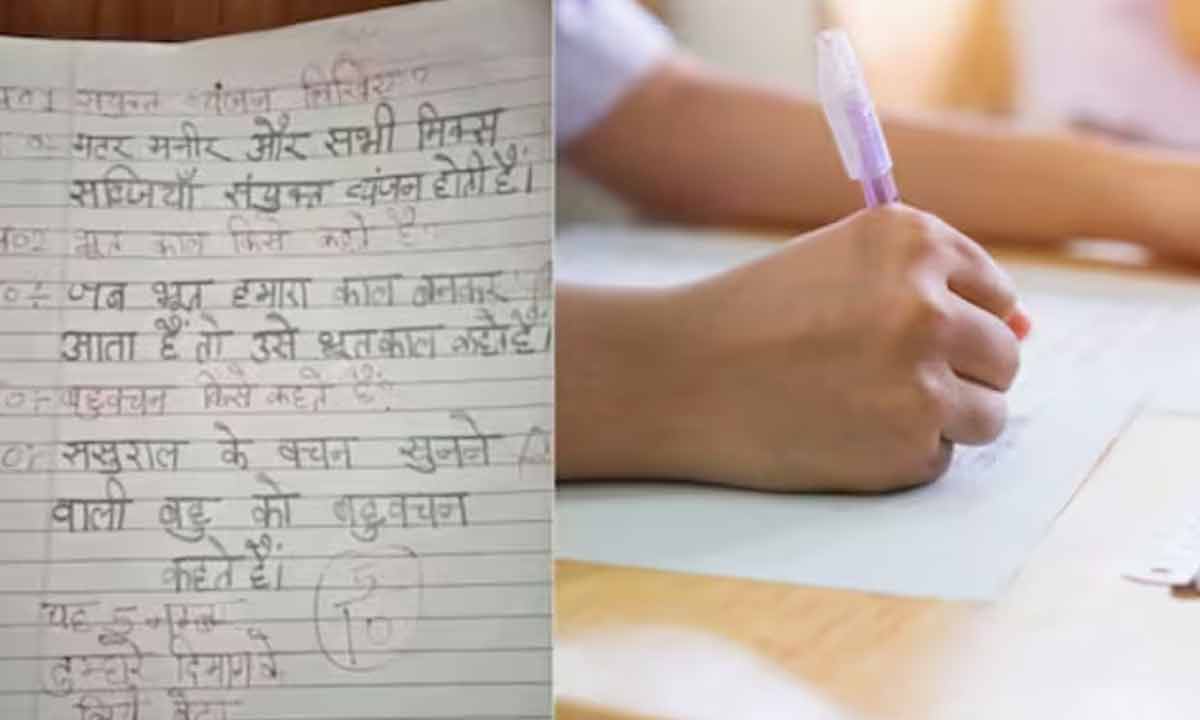 संयुक्त व्यंजन लिखिए
मटर मनीर और सभी मिक्स
सब्जियाँ संयुक्त व्यंजन होती हैं।
भूत काल किसे कहते है
जब भूत हमारा काल बनकर
आता हैं तो उसे भूतकाल कहते हैं।
बहुवचन किसे कहते है?
ससुराल के वचन सुनने
वाली बहु को बहुवचन
कहते हैं।
5
10
यह 5 नम्बर
तुम्हारे दिमाग के
लिये बेटा